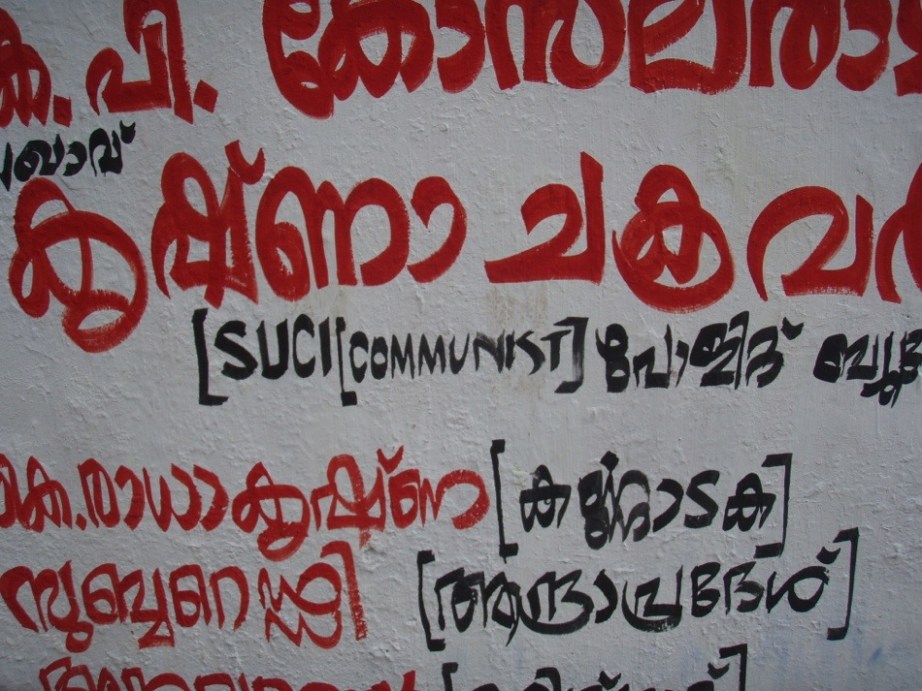 കെ. പി. കോസലരാമ
സഖാവ്
കൃഷ്ണാ ചക്രവർ
[SUCI[COMMUNIST] പോളിറ്റ് ബ്യൂറോ
കെ.രാധാകൃഷ്ണ [കർണ്ണാടക]
സുബ്ബറെഡ്ഡി [ആന്ധ്രാപ്രദേശ്]